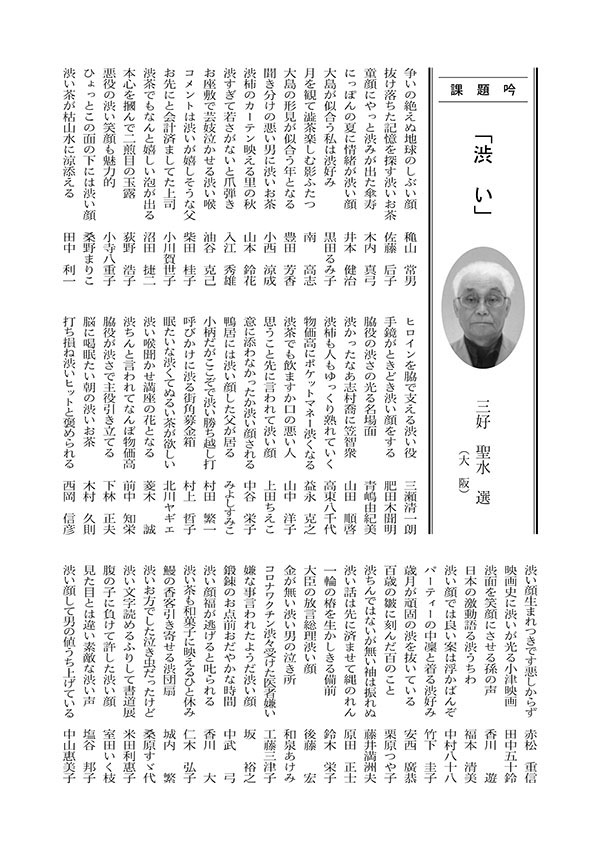 課題吟
「渋い」
三好 聖水 選
(大阪)
争いの絶えぬ地球のしぶい顔 穐山 常男
抜け落ちた記憶を探す渋いお茶 佐藤 后子
童顔にやっと渋みが出た傘寿 木内 真弓
にっぽんの夏に情緒が渋い顔 井本 健治
大島が似合う私は渋好み 黒田るみ子
月を観て澁茶楽しむ影ふたつ 南 高志
大島の形見が似合う年となる 豊田 芳香
聞き分けの悪い男に渋いお茶 小西 涼成
渋柿のカーテン映える里の秋 山本 鈴花
渋すぎて若さがないと爪弾き 入江 秀雄
お座敷で芸妓泣かせる渋い喉 油谷 克己
コメントは渋いが嬉しそうな父 柴田 桂子
お先にと会計済ましてた上司 小川賀世子
渋茶でもなんと嬉しい泡が出る 沼田 捷二
本心を摑んで二煎目の玉露 荻野 浩子
悪役の渋い笑顔も魅力的 小寺八重子
ひょっとこの面の下には渋い顔 桑野まりこ
渋い茶が枯山水に涼添える 田中 利一
ヒロインを脇で支える渋い役 三瀬清一朗
手鏡がときどき渋い顔をする 肥田木聞明
脇役の渋さの光る名場面 青嶋由紀美
渋かったなあ志村喬に笠智衆 山田 順啓
渋柿も人もゆっくり熟れていく 高東八千代
物価高にポケットマネー渋くなる 益永 克之
渋茶でも飲ますか口の悪い人 山中 洋子
思うこと先に言われて渋い顔 上田ちえこ
意に添わなかったか渋い顔される 中谷 栄子
鴨居には渋い顔した父が居る みよしすみこ
小柄だがここぞで渋い勝ち越し打 村田 繁一
呼びかけに渋る街角募金箱 村上 哲子
眠たいな渋くてぬるい茶が欲しい 北川ヤギエ
渋い喉聞かせ満座の花となる 菱木 誠
渋ちんと言われてなんぼ物価高 前中 知栄
脇役が渋さで主役引き立てる 下林 正夫
脳に喝眠たい朝の渋いお茶 木村 久則
打ち損ね渋いヒットと褒められる 西岡 信彦
渋い顔生まれつきです悪しからず 赤松 重信
映画史に渋いが光る小津映画 田中五十鈴
渋面を笑顔にさせる孫の声 香川 遊
日本の激動語る渋うちわ 福本 清美
渋い顔では良い案は浮かばんぞ 中村八十八
パーティーの中凜と着る渋好み 竹下 圭子
歳月が頑固の渋を抜いている 安西 廣恭
百歳の皺に刻んだ百のこと 栗原つや子
渋ちんではないが無い袖は振れぬ 藤井満洲夫
渋い話は先に済ませて縄のれん 原田 正士
一輪の椿を生かしきる備前 鈴木 栄子
大臣の放言総理渋い顔 後藤 宏
金が無い渋い男の泣き所 和泉あけみ
コロナワクチン渋々受けた医者嫌い 工藤三津子
嫌な事言われたようだ渋い顔 坂 裕之
鍛錬のお点前おだやかな時間 中武 弓
渋い顔福が逃げると叱られる 香川 大
渋い茶も和菓子に映えるひと休み 仁木 弘子
鰻の香客引き寄せる渋団扇 城内 繁
渋いお方でした泣き虫だったけど 桑原すゞ代
渋い文字読めるふりして書道展 米田利恵子
腹の子に負けて許した渋い顔 室田いく枝
見た目とは違い素敵な渋い声 塩谷 邦子
渋い顔して男の値うち上げている 中山恵美子